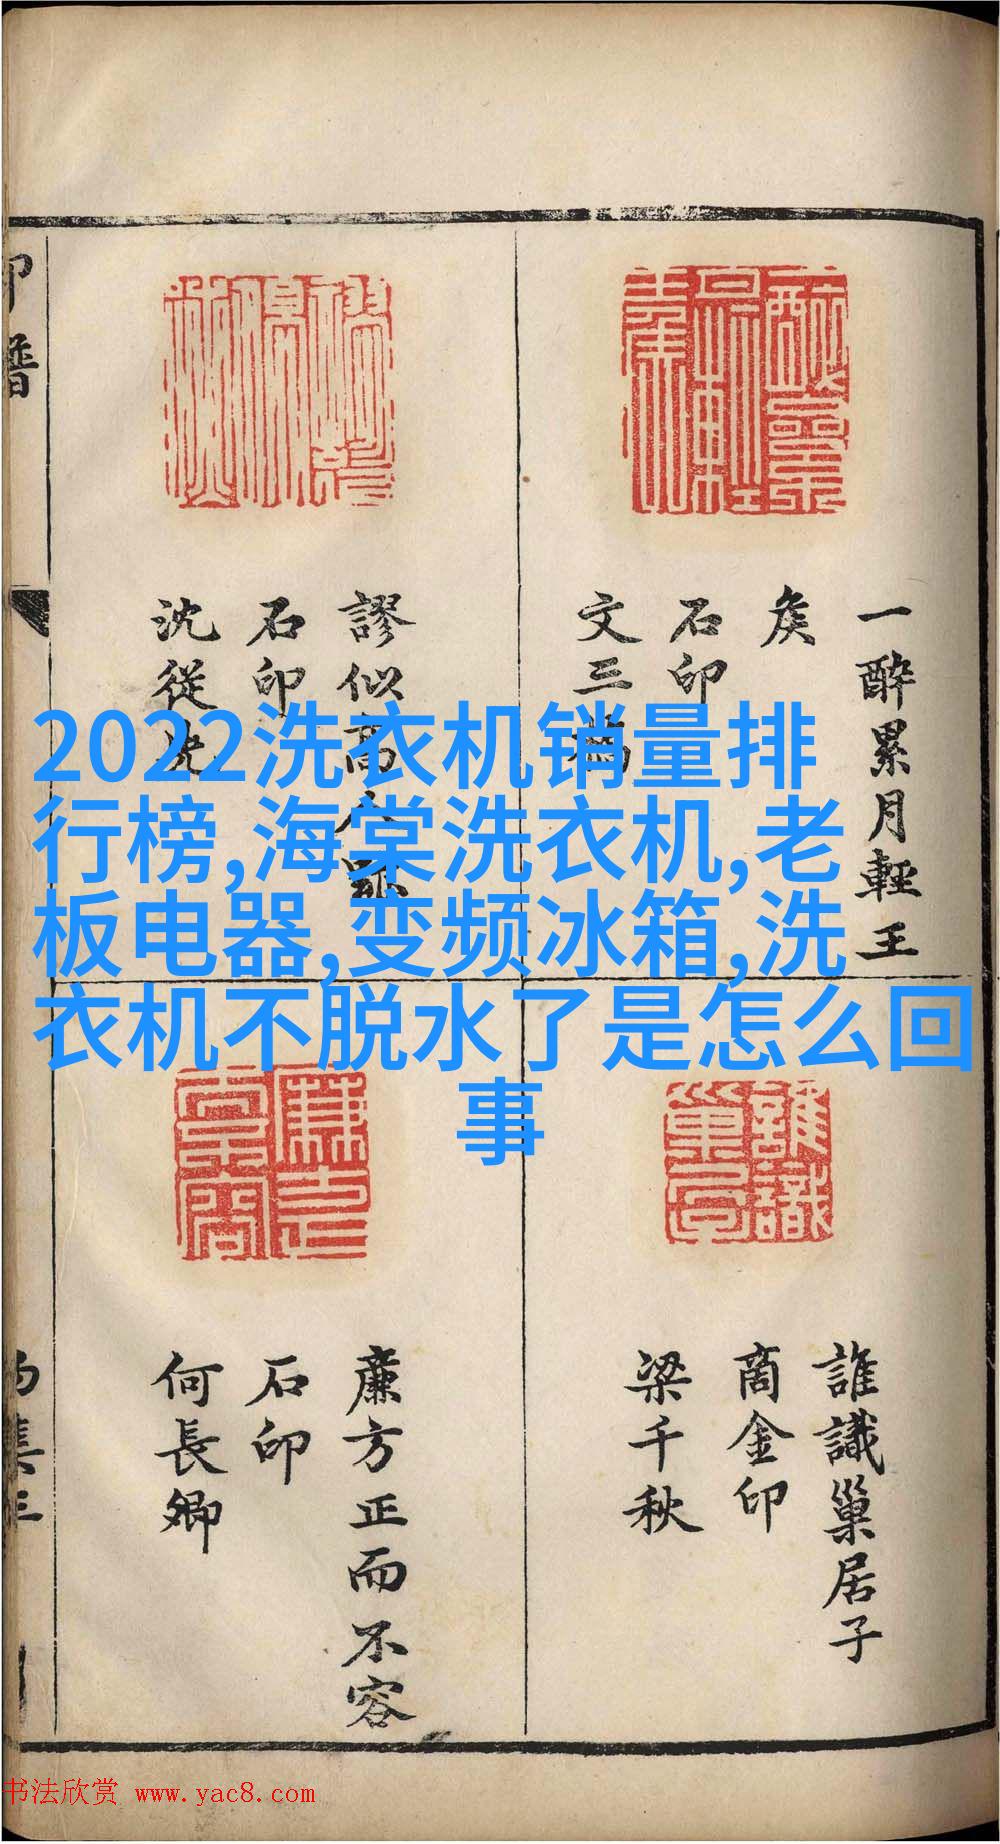 2022洗衣机销量排
行榜,海棠洗衣机,老
板电器,变频冰箱,洗
衣机不脱水了是怎么回
事
一醉累月輕王
矦
石印
文三橋
謬似高人
石印
沈從先
誰識巢居子
商金印
梁千秋
廉方正而不容
石印
何長卿
印譜
書法欣赏 www.yac8.com